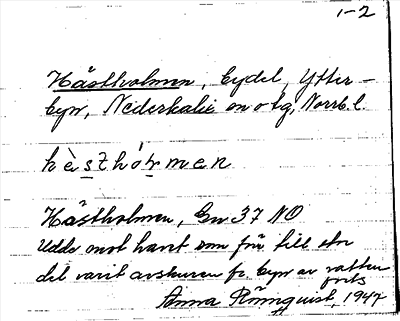 1-2
Hästholmen, bydel, Ytter-
byn, Nederkalix sn o tg, Norrb. l.
hèsthó₍rmen
Hästholmen, Gn 37 NO
Udde mot havet som förr till stor
del varit avskuren fr. byn av vatten
Anna Rönnquist, 1947